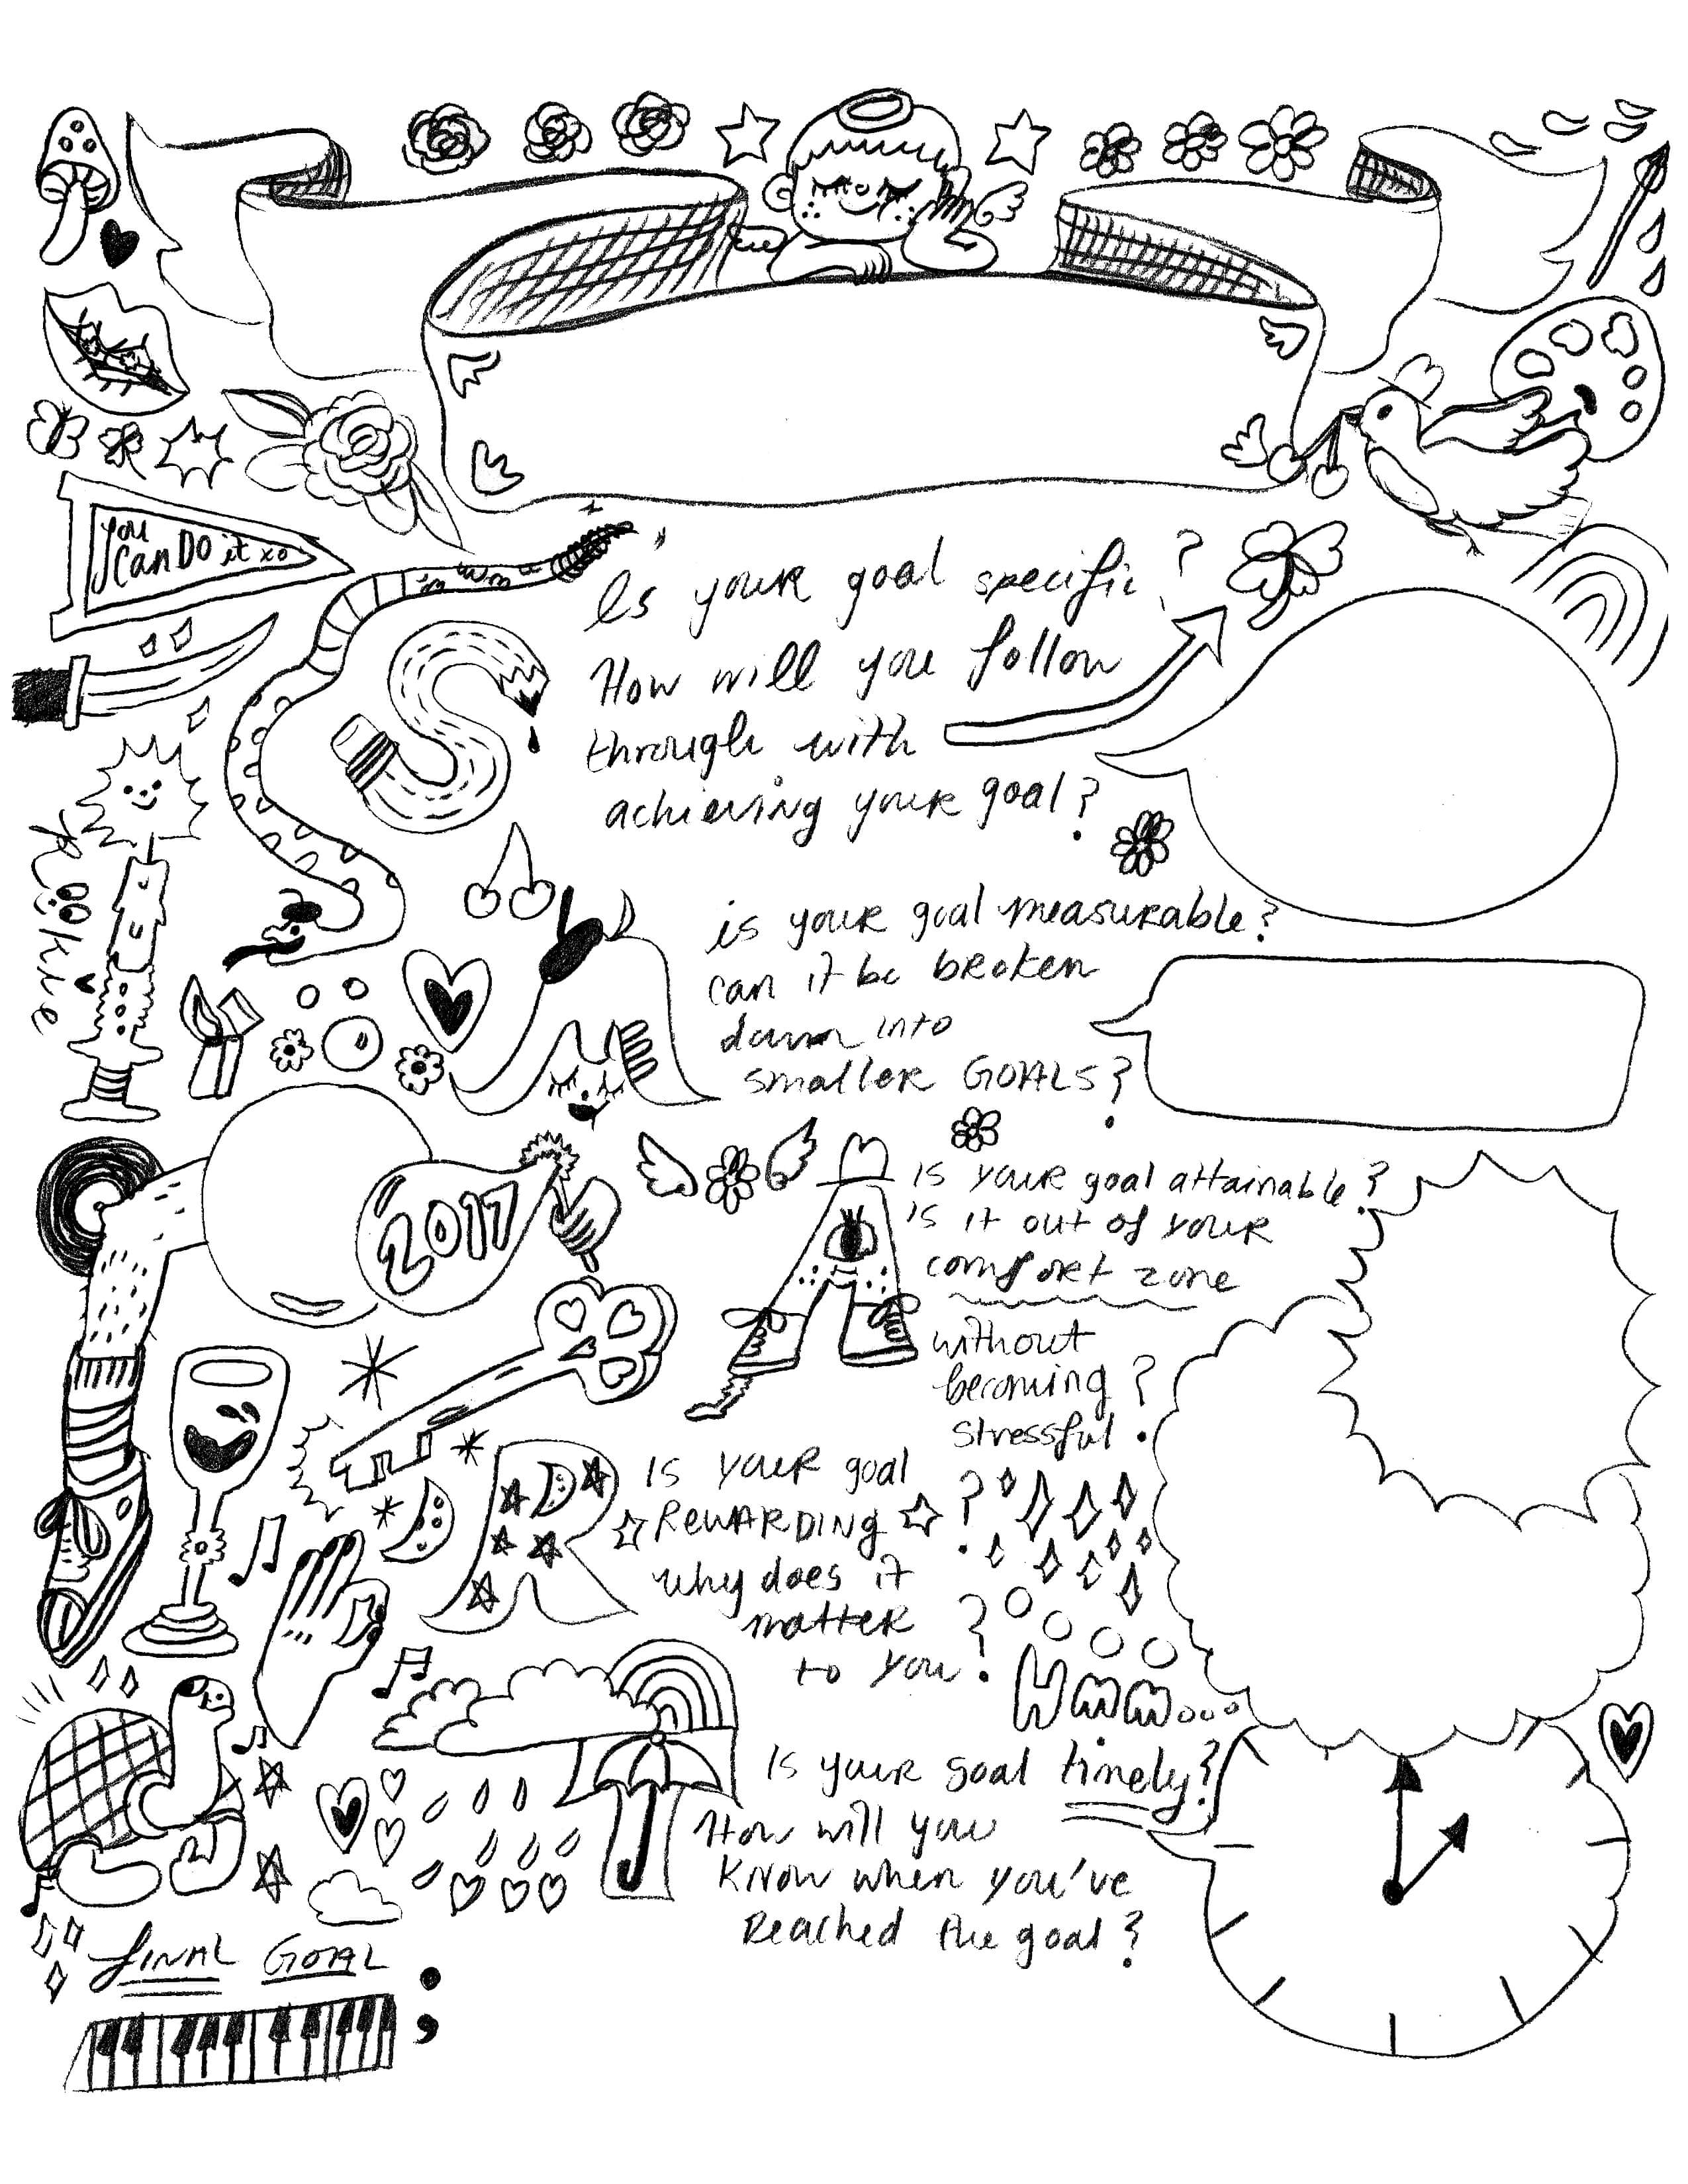 you
can DO it xo
Is your goal specific?
How will you follow
through with
achieving your goal?
Rookie
S
is your goal measurable?
can it be broken
down into
smaller GOALS?
M
2017
A
is your goal attainable?
is it out of your
comfort zone
without
becoming ?
stressful.
R
is your goal
REWARDING ?
why does it
matter
to you?
Hmm...
T
is your goal timely?
How will you
know when you've
Reached the goal?
FINAL GOAL ;